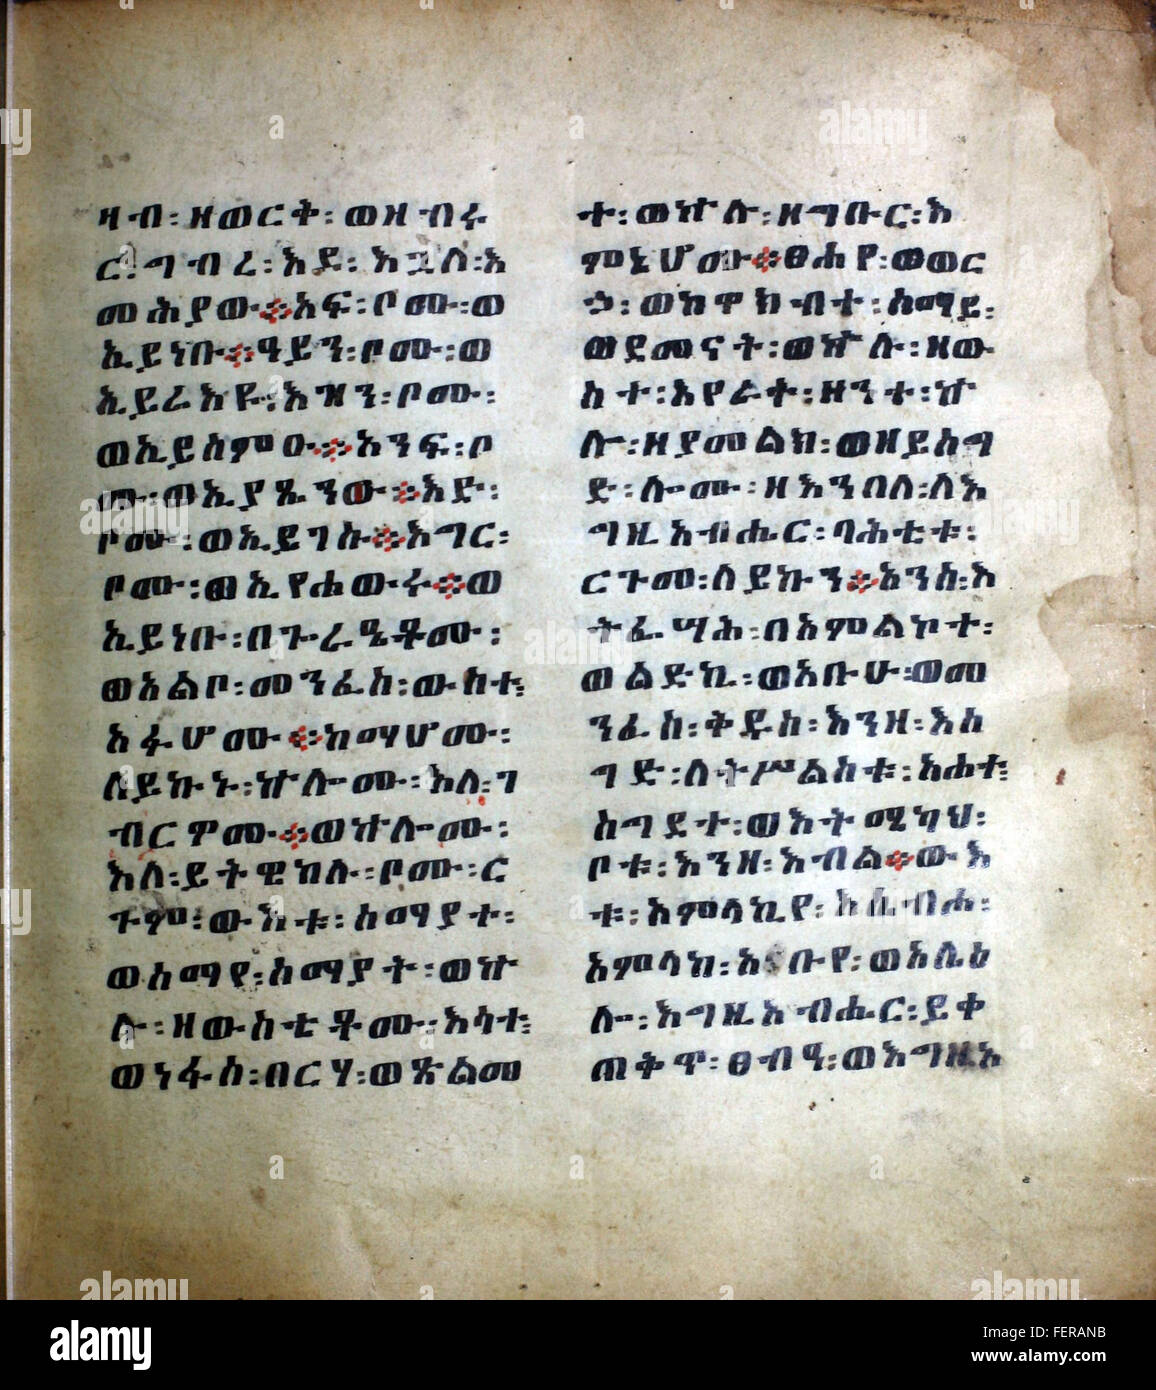 ዛብ፡ዘወርቅ፡ወዘብሩ
ር፡ግብረ፡እደ፡እጓለ፡እ
መሕያው፨አፍ፡ቦሙ፡ወ
ኢይነቡ፨ዓይን፡ቦሙ፡ወ
ኢይሬእዩ፡እዝን፡ቦሙ፡
ወኢይሰምዑ፨አንፍ፡ቦ
ሙ፡ወኢያጼንው፨እድ፡
ቦሙ፡ወኢይገሱ፨እግር፡
ቦሙ፡ወኢየሐውሩ፨ወ
ኢይነቡ፡በጉራዔቶሙ፡
ወአልቦ፡መንፈስ፡ውስተ፡
አፋሆሙ፨ከማሆሙ፡
ለይኩኑ፡ኵሎሙ፡እለ፡ገ
ብርዎሙ፨ወኵሎሙ፡
እለ፡ይትዌከሉ፡ቦሙ፡ር
ጉም፡ውእቱ፡ሰማያተ፡
ወሰማየ፡ሰማያት፡ወኵ
ሉ፡ዘውስቴቶሙ፡እሳተ፡
ወነፋስ፡በርሃ፡ወጽልመ
ተ፡ወኵሉ፡ዘግቡር፡እ
ምኔሆሙ፨ፀሐየ፡ወወር
ኃ፡ወከዋክብተ፡ሰማይ፡
ወደመናት፡ወኵሉ፡ዘው
ስተ፡አየራት፡ዘንተ፡ኵ
ሎ፡ዘያመልክ፡ወዘይሰግ
ድ፡ሎሙ፡ዘእንበለ፡ለእ
ግዚአብሔር፡ባሕቲቱ፡
ርጉመ፡ለይኩን፨አንሰ፡እ
ትፌሣሕ፡በአምልኮተ፡
ወልድኪ፡ወአቡሁ፡ወመ
ንፈስ፡ቅዱስ፡እንዘ፡እሰ
ግድ፡ለትሥልስቱ፡አሐተ፡
ስግደተ፡ወእትሚካህ፡
ቦቱ፡እንዘ፡እብል፨ውእ
ቱ፡አምላኪየ፡እሴብሖ፡
አምላክ፡አቡየ፡ወአሌዕ
ሎ፡እግዚአብሔር፡ይቀ
ጠቅጥ፡ፀብዓ፡ወእግዚአ